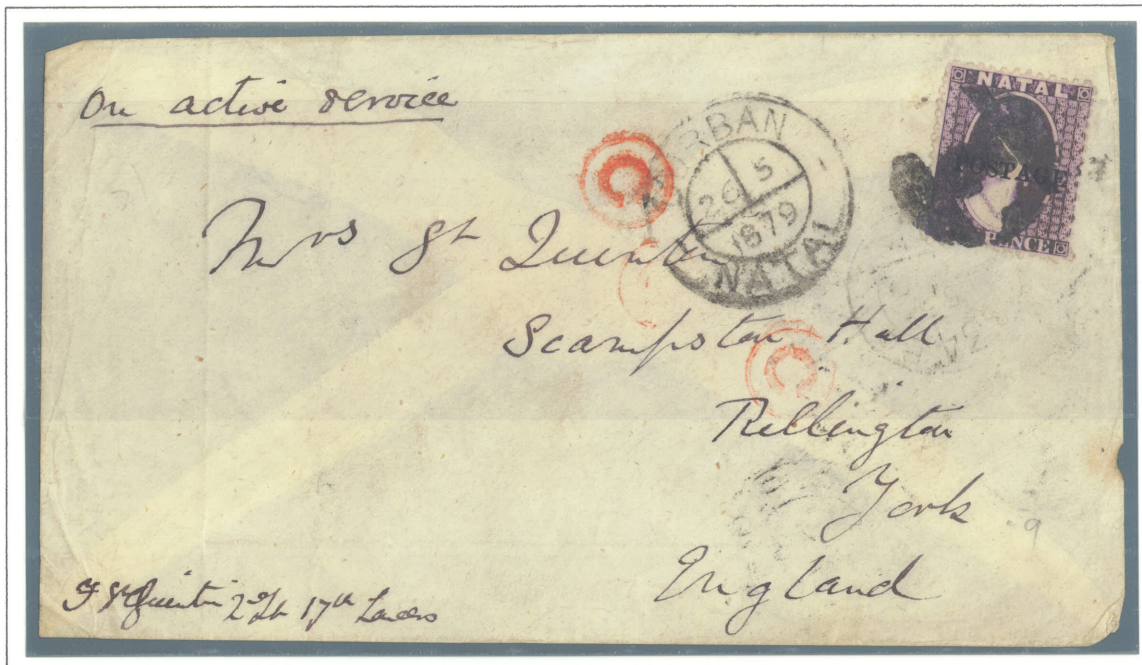 On active service
NATAL
POSTAGE
PENCE
DURBAN
26 5
1879
NATAL
C
C
Mrs St Quintin
Scampston Hall
Rillington
York
England
9
St Quintin 2d Lt 17th Lancers